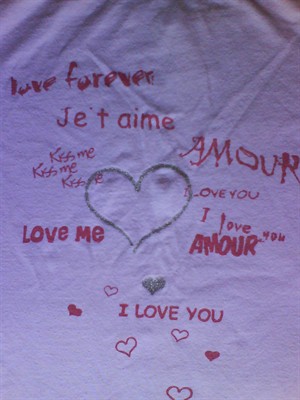 love forever
Je't aime
AMOUR
Kiss me
Kiss me
Kiss me
I LOVE YOU
I love you
LOVE Me
AMOUR
I LOVE YOU